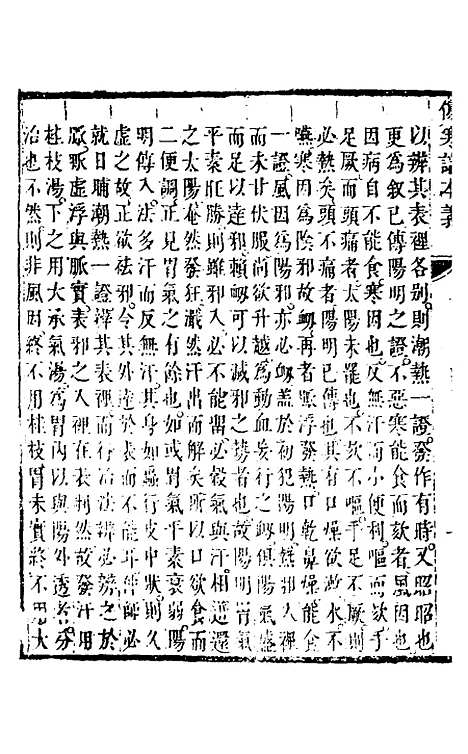 傷寒論本義
以辨其表裡各別則潮熱一證發作有時又昭昭也
更為叙已傳陽明之證不惡寒能食而欬者風因也
因病自不能食寒因也反無汗而小便利嘔而欬手
足厥而頭痛者太陽未罷也不欬不嘔手足不厥則
必熱矣頭不痛者陽明已傳也其有口燥欲漱水不
嚥寒因為陰邪故衂再者脈浮發熱口乾鼻燥能食
一證風因為陽邪亦必衂蓋於初犯陽明經邪入裡
而未甘伏服尚欲升越為動血妄行之候俱陽明胃氣
而足以達邪賴衂可以減邪之勢者也故陽明胃氣
平素旺勝則雖邪入必不能畱必穀氣與汗相迸還
之太陽奄然發狂濈然汗出而解矣所以口欲食而
二便調正見胃氣之有餘也如或胃氣平素衰弱陽
明傳入法多汗而反無汗其身如蟲行皮中狀則久
虛之故正欲祛邪今其外達於表而不能耳仲師必
就日晡潮熱一證辨其表裡而行治法辨必辨之於
脈脈虛浮與脈實表之與裡在表判然故發汗用
桂枝湯下之用大承氣湯為胃内以與陽外透者分
治也不然則非風因終不用桂枝胃未實終不用大